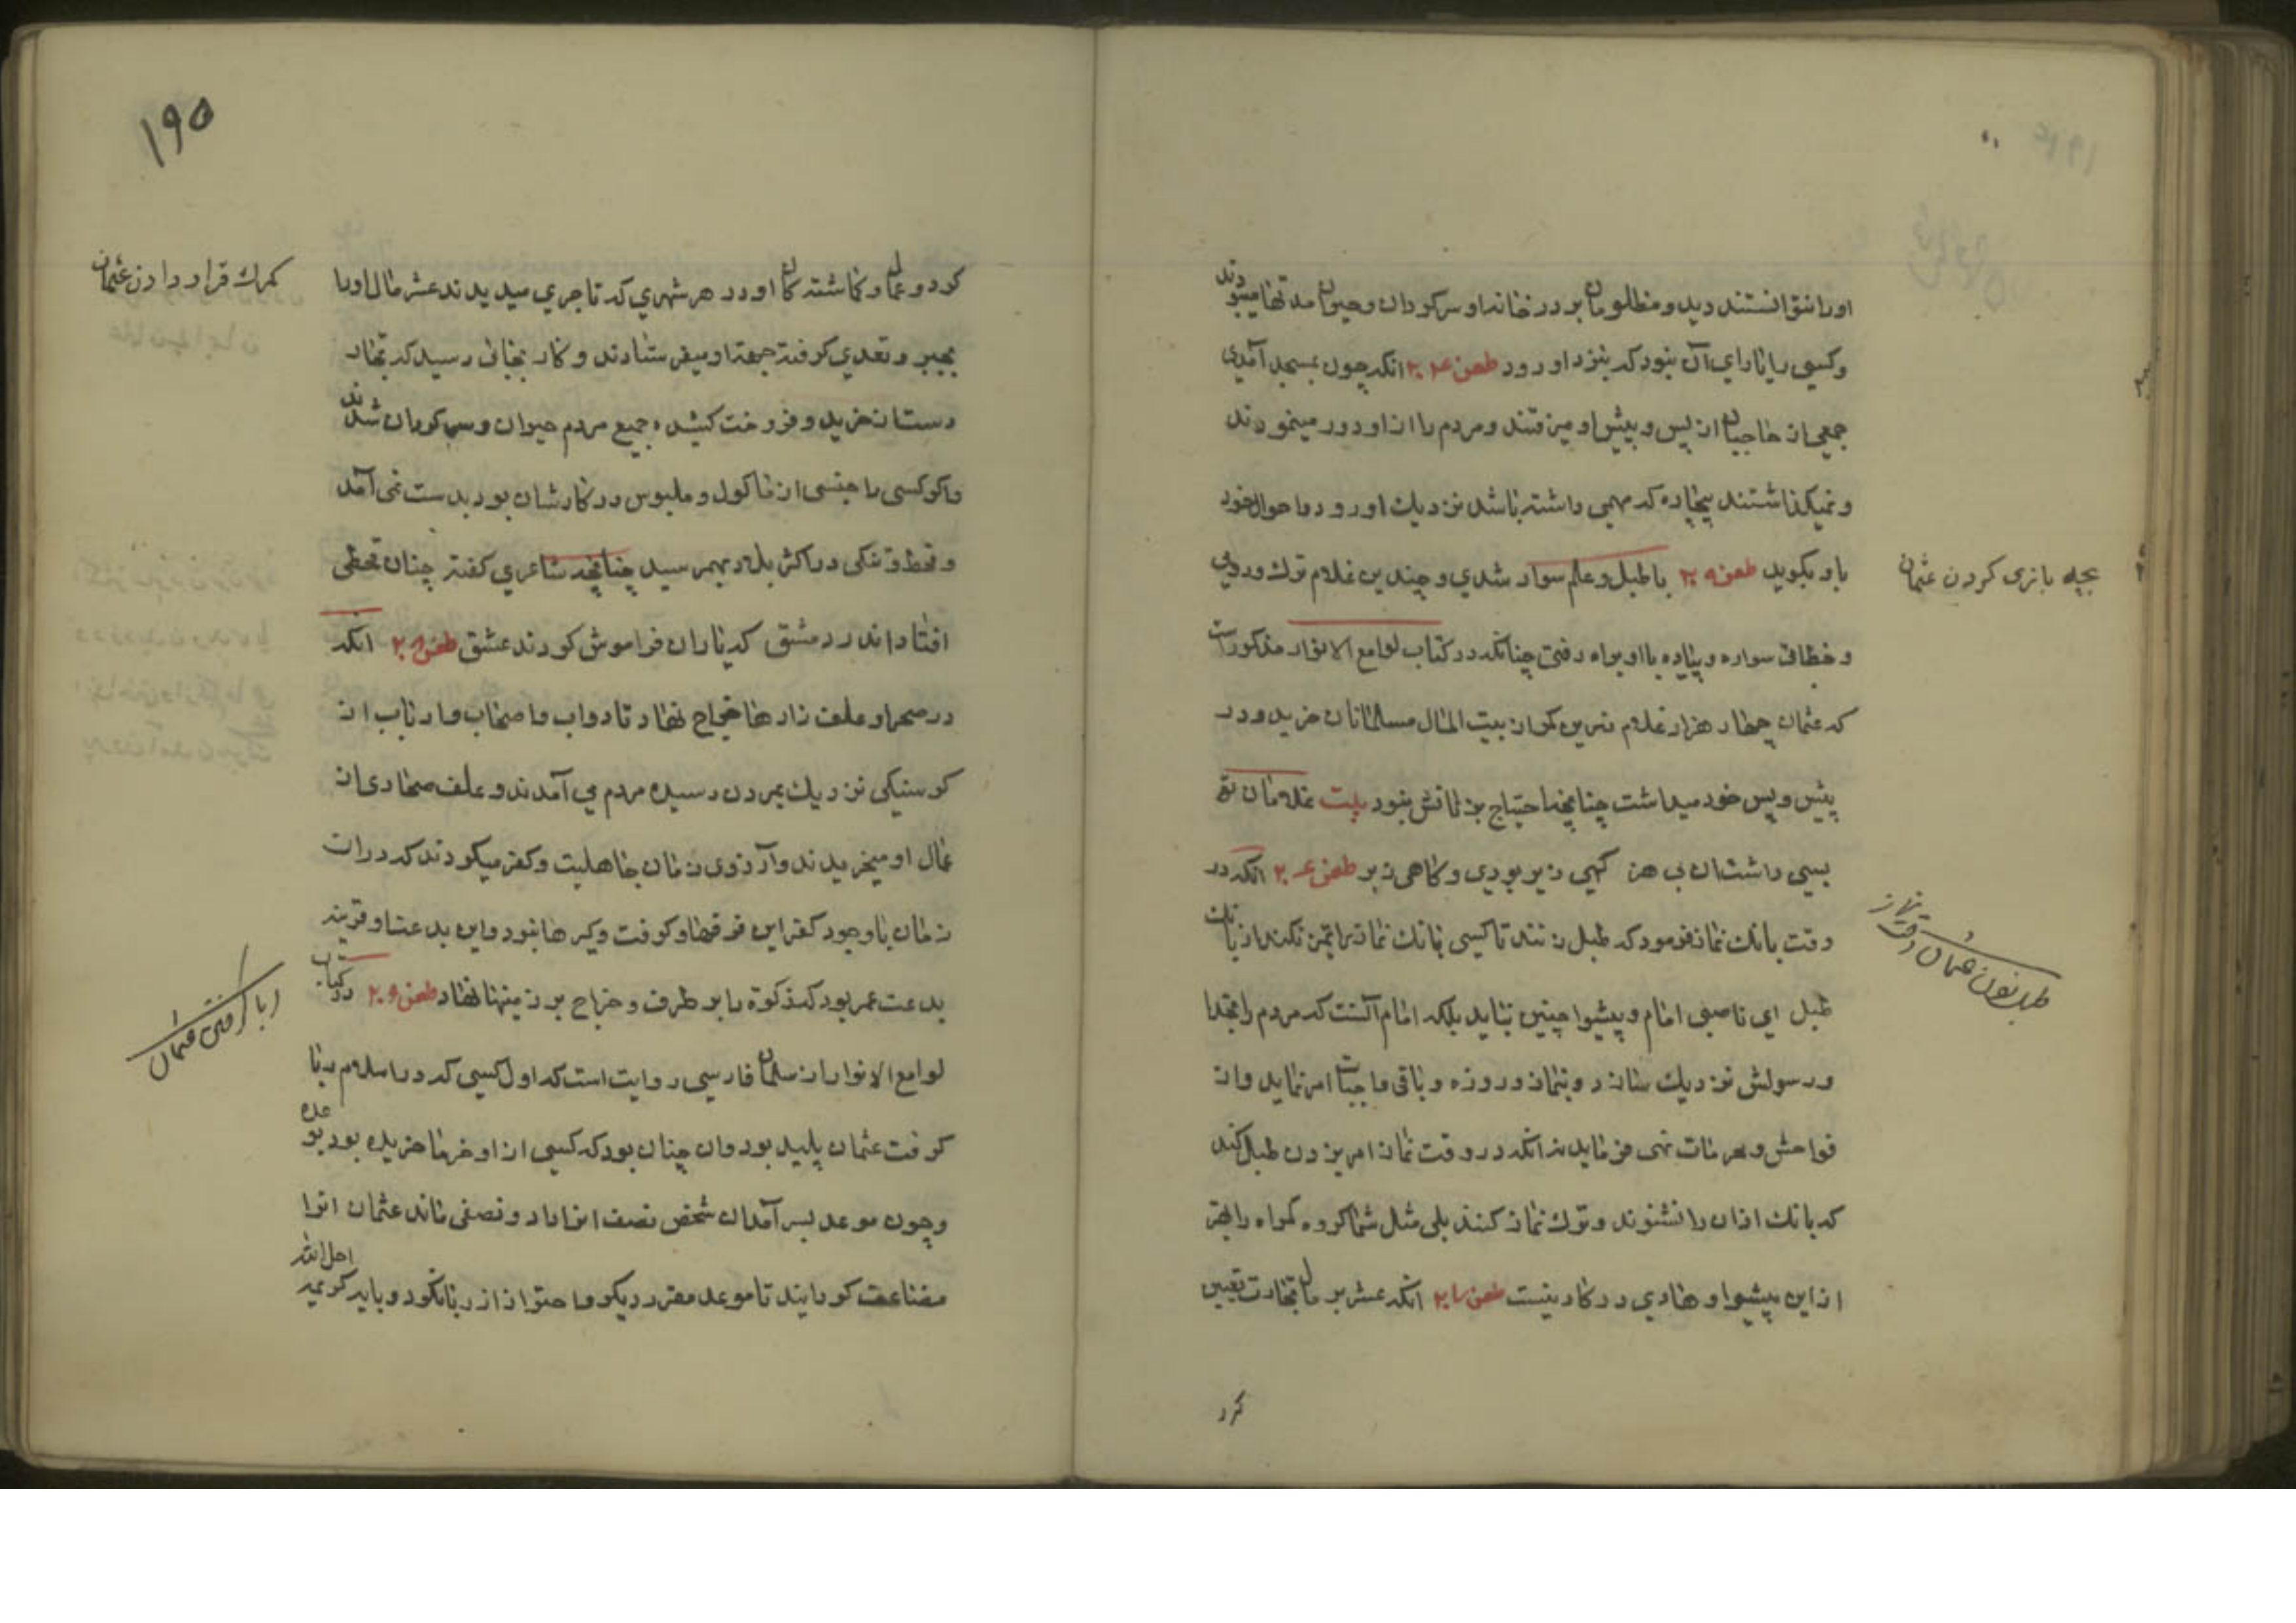 اورا نتوانستند دید و مظلومان بر در خانه او سرکردان و حیران مدتها میبودند
و کسی را یارای آن نبود که بنزد او رود طعن ۲۰۴ انکه چون بمسجد آمدی
جمعی از حاجبان از پس و پیش او میرفتند و مردم را از او دور مینمودند
و نمیکذاشتند بیچاره که مهمی داشته باشد نزدیك او رود و احوال خود
باو بکوید طعن ۲۰۵ با طبل و علم سوار شدی و چندین غلام ترك و رومی
سواره و پیاده با او براه رفتی چنانکه در کتاب لوامع الانوار مذکور است
که عثمان چهار هزار غلام زرین کمر از بیت المال مسلمانان خرید و در
پیش و پس خود میداشت چنانچه احتیاج بزنانش نبود بیت غلامان
بسی داشت ان بی هنر کهی زیر بودی و کاهی زبر طعن ۲۰۶ انکه در
وقت بانك نماز فرمود که طبل زنند تا کسی بانك نماز را تمیز نکند از بانك
طبل ای ناصبی امام و پیشوا چنین نباید بلکه امام آنست که مردم را بخدا
و رسولش نزدیك سازد و بنماز و روزه و باقی واجبات امر نماید و از
فواحش و محرمات نهی فرماید نه انکه در وقت نماز امر بزدن طبل کند
که بانك اذان را نشنوند و ترك نماز کنند بلی مثل شما کروه کمراه را بهتر
از این پیشوا و هادی در کار نیست طعن ۲۰۷ انکه عشر بر مال تجارت تعیین
کرد
بچه بازی کردن عثمان
طبل زدن عثمان در وقت نماز
۱۹۵
کرد و عمال و کماشتکان او در هر شهری که تاجری میدیدند عشر مال اورا
بجبر و تعدی کرفته جهة او میفرستادند و کار بجائی رسید که تجار
دست از خرید و فروخت کشیده جمیع مردم حیران و سرکردان شدند
و اکر کسی را جنسی از ماکول و ملبوس در کارشان بود بدست نمی آمد
و قحط و تنکی در اکثر بلاد بهم رسید چنانچه شاعری کفته چنان قحطی
افتاد اندر دمشق که یاران فراموش کردند عشق طعن ۲۰۸ انکه
در صحرا و علف زارها خراج نهاد تا دواب و اصحاب و ارباب از
کرسنکی نزدیك بمردن رسیده مردم می آمدند و علف صحاری از
عمال او میخریدند و آرزوی زمان جاهلیت و کفر میکردند که در ان
زمان با وجود کفر این فرقها و کرفت و کیرها نبود و این بدعت او قرینه
بدعت عمر بود که زکوة را بر طرف و خراج بر زمینها نهاد طعن ۲۰۹ در کتاب
لوامع الانوار از سلمان فارسی روایت است که اول کسی که در اسلام ربا
کرفت عثمان پلید بود و ان چنان بود که کسی از او خرما خریده بود بوعده
و چون موعد بسر آمد ان شخص نصف انرا داد و نصفی ماند عثمان انرا
مضاعف کردانید تا موعد مقرر دیکر
کمرك قرار دادن عثمان
ربا کرفتن عثمان